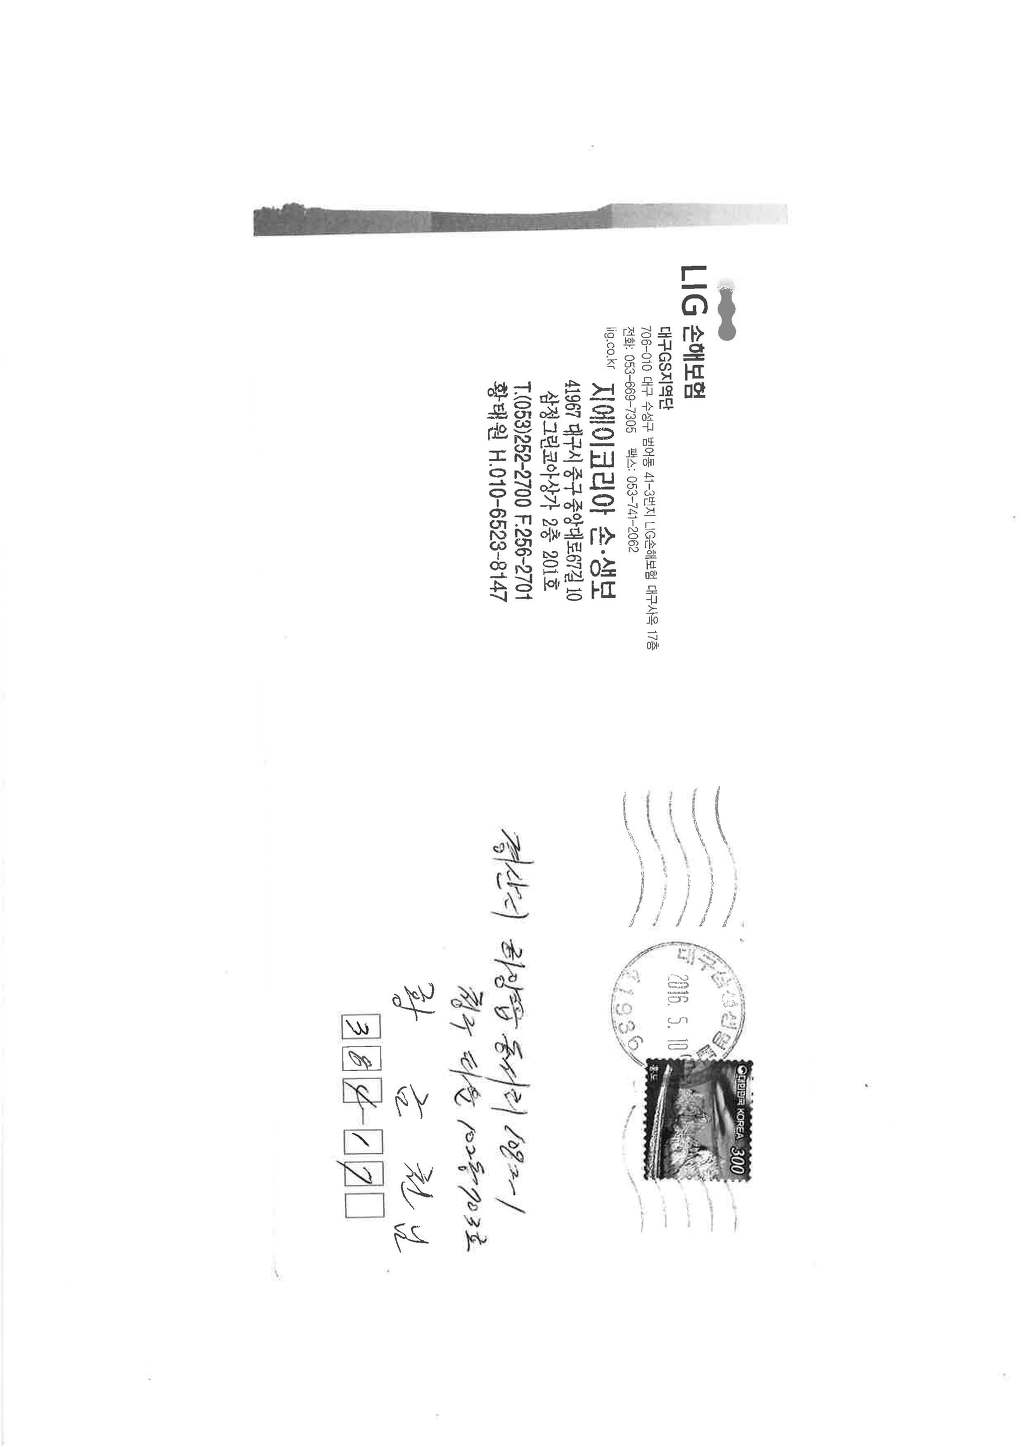 LIG 손해보험
대구GS지역단
706-010 대구 수성구 범어동 41-3번지 LIG손해보험 대구사옥 17층
전화: 053-669-7305 팩스: 053-741-2062
lig.co.kr
지에이코리아 손·생보
41967 대구시 중구 중앙대로67길 10
삼정그린코아상가 2층 201호
T.(053)252-2700 F.256-2701
황태원 H.010-6523-8147
2016. 5. 10
41936
대한민국 KOREA 300
홍도
경산시 하양읍 동서리
102동 703호
384-17